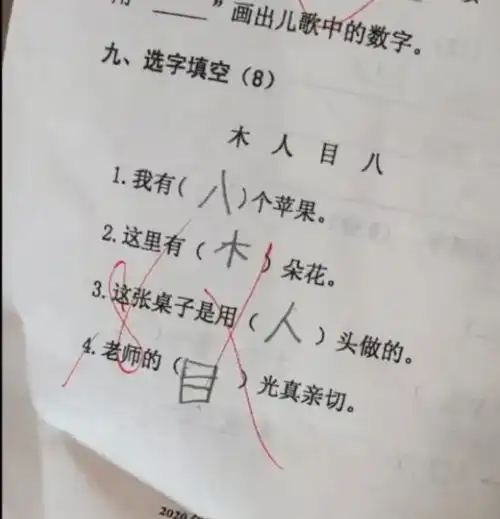 "画出儿歌中的数字。
九、选字填空（8）
木 人 目 八
1.我有(八)个苹果。
2.这里有（木）朵花。
3.这张桌子是用（人）头做的。
4.老师的（目）光真亲切。
2020